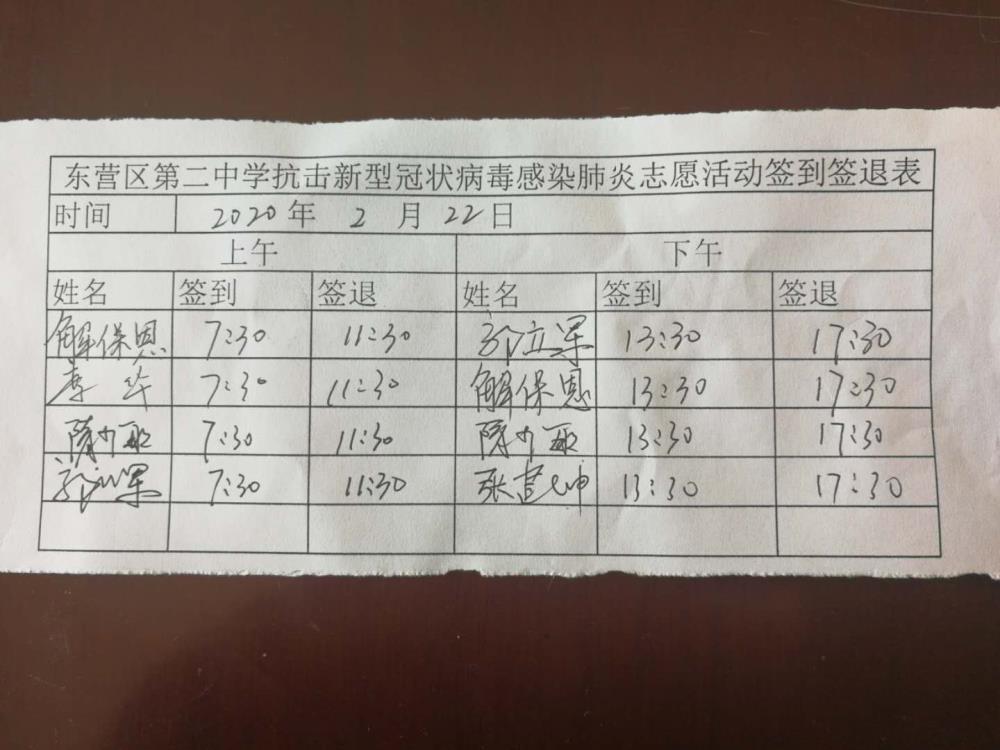 东营区第二中学抗击新型冠状病毒感染肺炎志愿活动签到签退表
时间 2020年 2 月 22日
上午 下午
姓名 签到 签退 姓名 签到 签退
解保恩 7:30 11:30 立军 13:30 17:30
李华 7:30 11:30 解保恩 13:30 17:30
7:30 11:30 13:30 17:30
7:30 11:30 张 坤 13:30 17:30